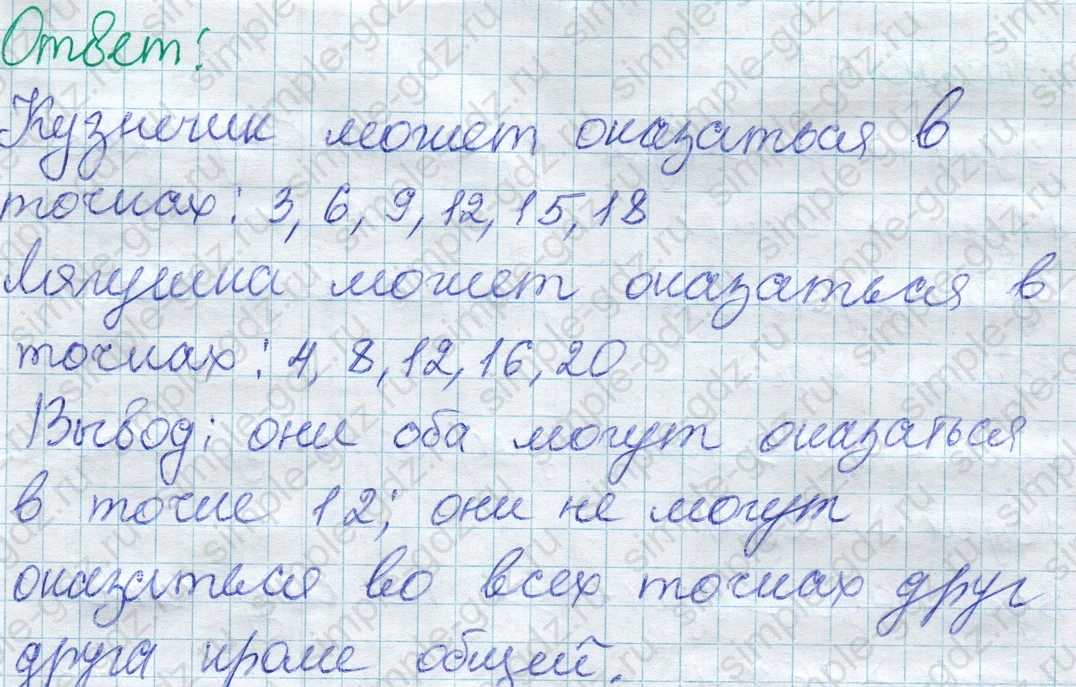 Ответ:
Кузнечик может оказаться в
точках: 3, 6, 9, 12, 15, 18
Лягушка может оказаться в
точках: 4, 8, 12, 16, 20
Вывод: они оба могут оказаться
в точке 12; они не могут
оказаться во всех точках друг
друга кроме общей.
simple-gdz.ru